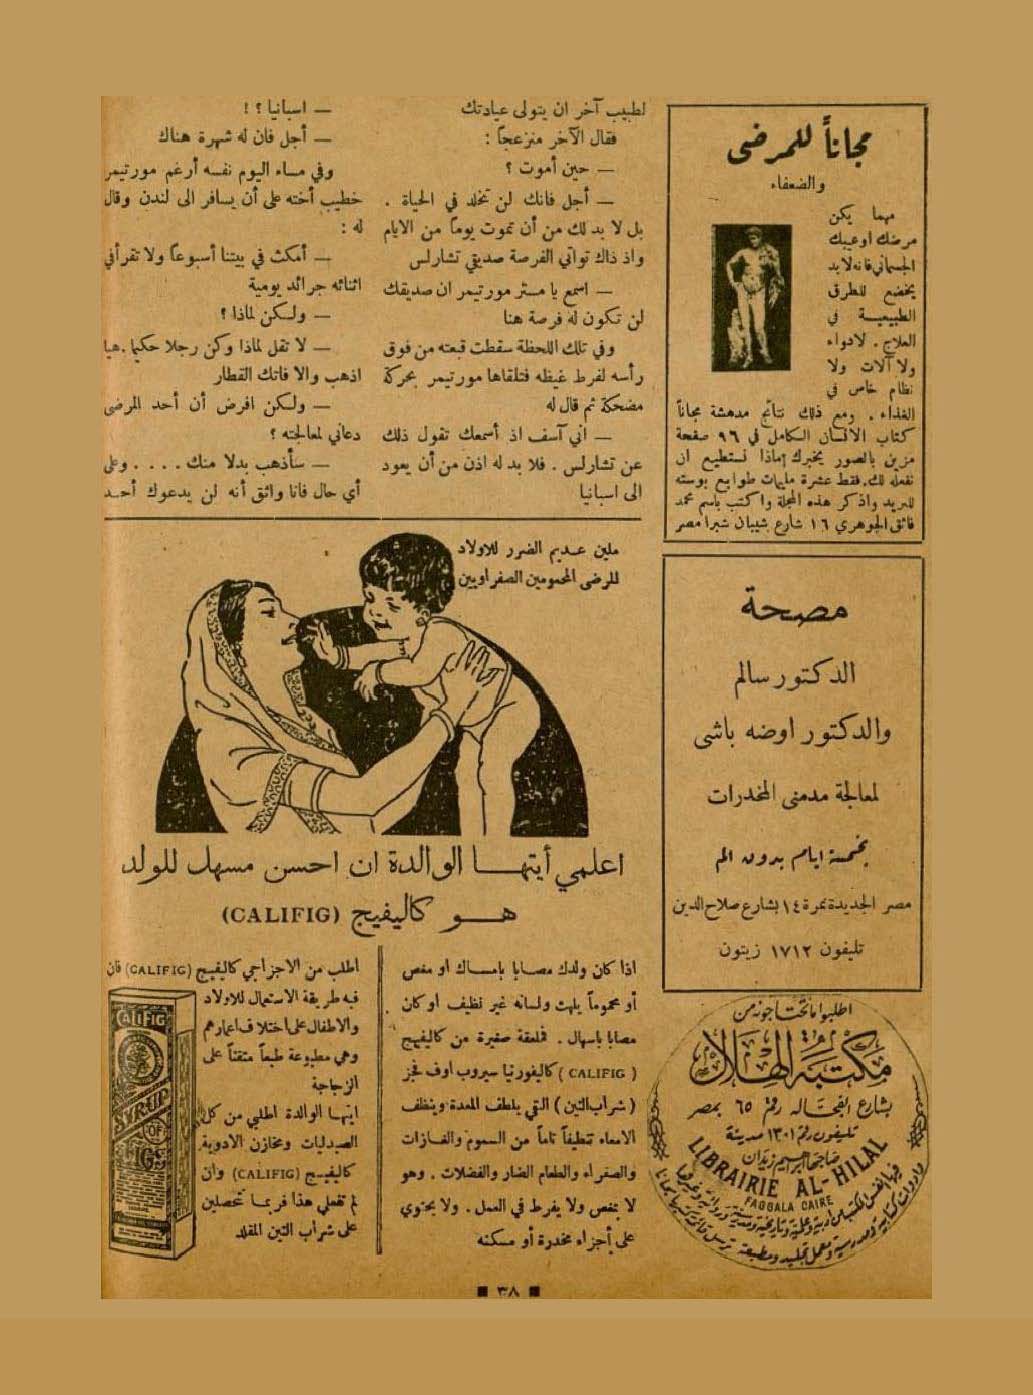 مجاناً للمرضى
والضعفاء
مهما يكن
مرضك اوعيبك
الجسماني فانه لابد
يخضع للطرق
الطبيعية في
العلاج . لادواء
ولا آلات ولا
نظام خاص في
الغذاء . ومع ذلك نتائج مدهشة مجاناً
كتاب الانسان الكامل في ٩٦ صفحة
مزين بالصور يخبرك بماذا نستطيع ان
نفعله لك. فقط عشرة مليمات طوابع بوسته
للبريد واذكر هذه المجلة واكتب باسم محمد
فائق الجوهري ١٦ شارع شيبان شبرا مصر
لطبيب آخر ان يتولى عيادتك
فقال الآخر منزعجاً :
— حين أموت ؟
— أجل فانك لن تخلد في الحياة .
بل لا بد لك من أن تموت يوماً من الايام
واذ ذاك تواتي الفرصة صديقي تشارلس
— اسمع يا مستر مورتيمر ان صديقك
لن تكون له فرصة هنا
وفي تلك اللحظة سقطت قبعته من فوق
رأسه لفرط غيظه فتلقاها مورتيمر بحركة
مضحكة ثم قال له
— اني آسف اذ أسمعك تقول ذلك
عن تشارلس . فلا بد له اذن من أن يعود
الى اسبانيا
— اسبانيا ؟ !
— أجل فان له شهرة هناك
وفي مساء اليوم نفسه أرغم مورتيمر
خطيب أخته على أن يسافر الى لندن وقال
له :
— أمكث في بيتنا أسبوعاً ولا تقرأ في
اثنائه جرائد يومية
— ولكن لماذا ؟
— لا تقل لماذا وكن رجلا حكيما . هيا
اذهب والا فاتك القطار
— ولكن افرض أن أحد المرضى
دعاني لمعالجته ؟
— سأذهب بدلا منك . . . . وعلى
أي حال فانا واثق أنه لن يدعوك أحد
مصحة
الدكتور سالم
والدكتور اوضه باشى
لمعالجة مدمنى المخدرات
بخمسة ايام بدون الم
مصر الجديدة نمرة ١٤ بشارع صلاح الدين
تليفون ١٧١٢ زيتون
اطلبوا ما تحتاجونه من
مكتبة الهلال
بشارع الفجاله رقم ٦٥ بمصر
تليفون رقم ١٣٠١ مدينة
صاحبها ابراهيم زيدان
LIBRAIRIE AL-HILAL
FAGGALA CAIRE
ملين عديم الضرر للاولاد
للرضى المحمومين الصفراويين
اعلمي أيتها الوالدة ان احسن مسهل للولد
هو كاليفيج (CALIFIG)
اذا كان ولدك مصابا بامساك او مغص
أو محموماً يلهث ولسانه غير نظيف او كان
مصابا باسهال . فملعقة صغيرة من كاليفيج
( CALIFIG ) كاليفورنيا سيروب اوف فجز
( شراب التين ) التي يلطف المعدة وينظف
الامعاء تنظيفاً تاماً من السموم والغازات
والصفراء والطعام الضار والفضلات . وهو
لا يمغص ولا يفرط في العمل . ولا يحتوي
على أجزاء مخدرة أو مسكنه
اطلب من الاجزاجي كاليفيج (CALIFIG) فان
فيه طريقة الاستعمال للاولاد
والاطفال على اختلاف اعمارهم
وهي مطبوعة طبعاً متقناً على
الزجاجة
ايتها الوالدة اطلبي من كل
الصيدليات ومخازن الادوية
كاليفيج (CALIFIG) وان
لم تفعلي هذا فربما تحصلين
على شراب التين المقلد
CALIFIG
SYRUP
OF
FIGS
٣٨